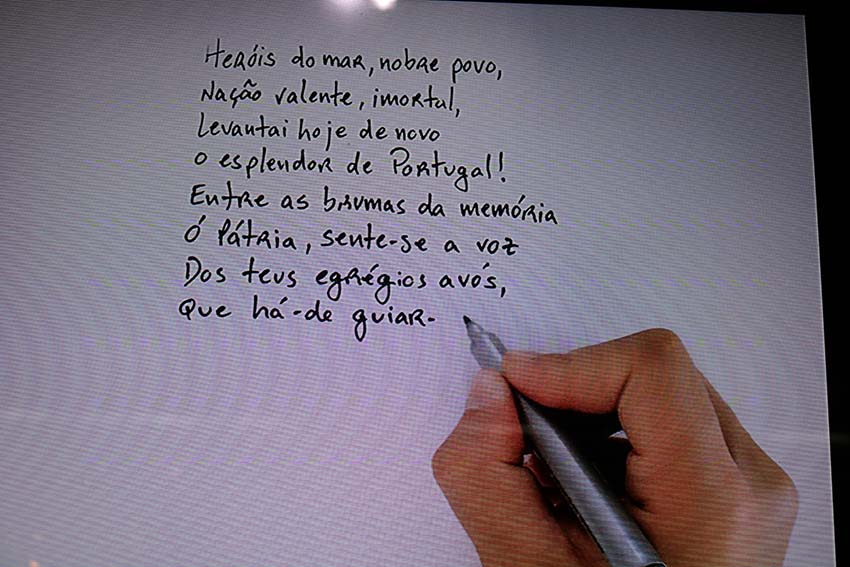 Heróis do mar, nobre povo,
Nação valente, imortal,
Levantai hoje de novo
O esplendor de Portugal!
Entre as brumas da memória
Ó Pátria, sente-se a voz
Dos teus egrégios avós,
Que há-de guiar-